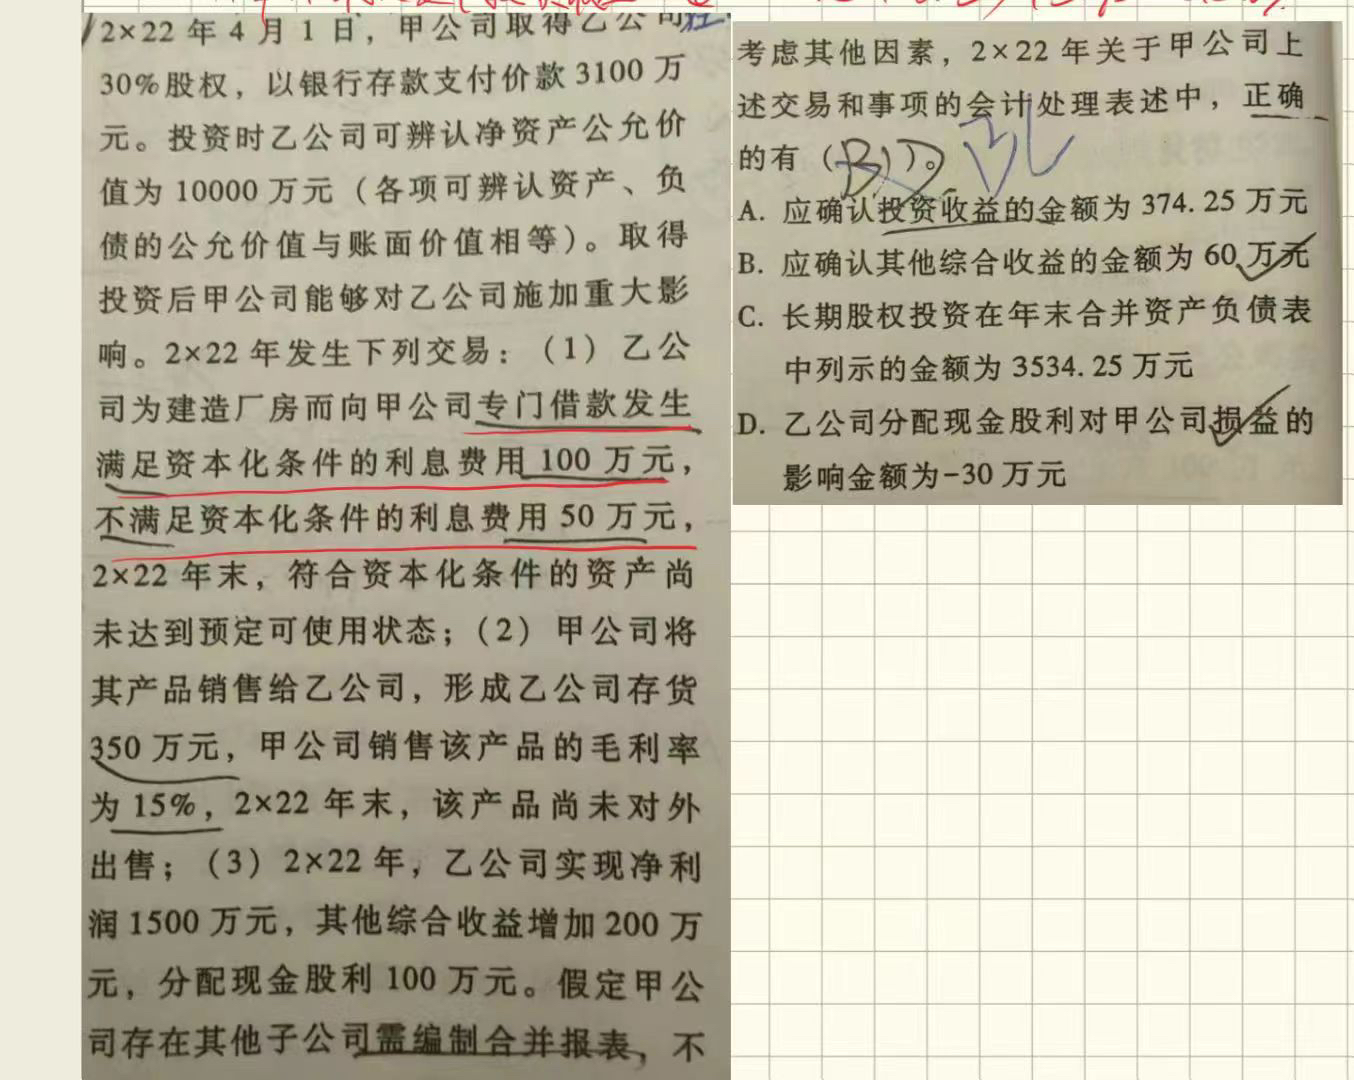 2×22 年 4 月 1 日，甲公司取得乙公司
30%股权，以银行存款支付价款 3100 万
元。投资时乙公司可辨认净资产公允价
值为 10000 万元（各项可辨认资产、负
债的公允价值与账面价值相等）。取得
投资后甲公司能够对乙公司施加重大影
响。2×22 年发生下列交易：（1）乙公
司为建造厂房而向甲公司专门借款发生
满足资本化条件的利息费用 100 万元，
不满足资本化条件的利息费用 50 万元，
2×22 年末，符合资本化条件的资产尚
未达到预定可使用状态；（2）甲公司将
其产品销售给乙公司，形成乙公司存货
350 万元，甲公司销售该产品的毛利率
为 15%，2×22 年末，该产品尚未对外
出售；（3）2×22 年，乙公司实现净利
润 1500 万元，其他综合收益增加 200 万
元，分配现金股利 100 万元。假定甲公
司存在其他子公司需编制合并报表，不
考虑其他因素，2×22 年关于甲公司上
述交易和事项的会计处理表述中，正确
的有（BD）。
A. 应确认投资收益的金额为 374.25 万元
B. 应确认其他综合收益的金额为 60 万元
C. 长期股权投资在年末合并资产负债表
中列示的金额为 3534.25 万元
D. 乙公司分配现金股利对甲公司损益的
影响金额为-30 万元